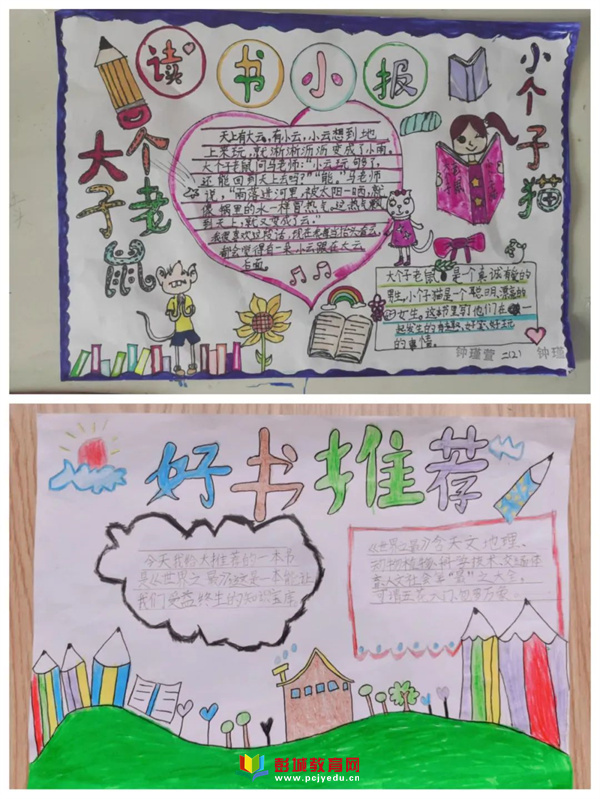 读书小报
大个子老鼠
小个子猫
天上有大云，有小云，小云想到地
上来玩，就淅淅沥沥变成了小雨。
大个子老鼠问马老师："小云玩够了，
还能回到天上去吗？""能，"马老师
说，"雨落进河里，被太阳一晒，就
像锅里的水一样冒热气，这热气飘
到天上，就又变成了云。"
我很喜欢这段话，现在我看
都会觉得有一朵小云跟在大云
后面。
大个子老鼠是一个真诚
男生，小个子猫是一个聪明、漂亮的
女生。这本书里写了他们在一
起发生的有趣、好笑、好玩
的事情。
钟瑾萱 二(2) 钟瑾
好书推荐
今天我给大推荐的一本书
是《世界之最》这是一本能让
我们受益终生的知识宝库
《世界之最》含天文地理、
动物植物、科学技术、交通体
育人文社会学"最"之大全，
包罗万象。
彭城教育网
www.pcjyedu.cn